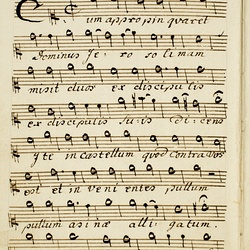 Cum appropinquaret
Dominus Je ro so li mam
misit duos ex discipulis
ex discipulis suis dicens
Ite in castellum quod contra vos
est et in veni entes pullum
pullum asinæ alli gatum.